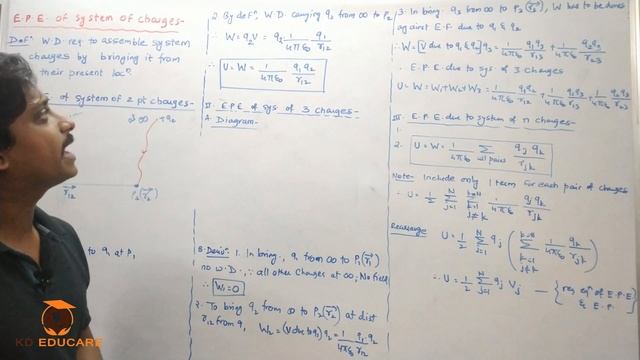 E.P.E of system of charges-
Def^n: W.D req to assemble system
charges by bringing it from
their present loc^n.
of system of 2 pt charges-
∞ + q2
r12
P2 (r2)
to q1 at P1
2. By def^n, W.D. carrying q2 from ∞ to P2
∴ W = q2V = q2 · 1/4πε0 q1/r12
∴ U = W = 1/4πε0 q1 q2/r12
II. E.P.E of sys of 3 charges-
A. Diagram-
B. Deriv^n: 1. In bring. q1 from ∞ to P1(r1)
no W.D., ∵ all other charges at ∞, No field
∴ W1 = 0
2. To bring q2 from ∞ to P2(r2) at dist
r12 from q1 W2 = (V due to q1) q2 = 1/4πε0 q1 q2/r12
3. In bring. q3 from ∞ to P3(r3), W has to be done
against E.F due to q1 & q2
∴ W = [V due to q1 & q2] q3 = 1/4πε0 q1q3/r13 + 1/4πε0 q2q3/r23
∴ E.P.E due to sys. of 3 charges
U = W = W1 + W2 + W3 = 1/4πε0 q1q2/r12 + 1/4πε0 q1q3/r13 + 1/4πε0 q2q3/r23
III. E.P.E. due to system of n charges-
1.
2. U = W = 1/4πε0 Σ all pairs qj qk/rjk
Note- Include only 1 term for each pair of charges
∴ U = 1/2 Σ N j=1 Σ k=N k=1 j≠k 1/4πε0 qj qk/rjk
Rearrange U = 1/2 Σ N j=1 qj ( Σ k=N k=1 j≠k 1/4πε0 qk/rjk )
∴ U = 1/2 Σ N j=1 qj Vj — { req eq^n of E.P.E & E.P. }
KD EDUCARE